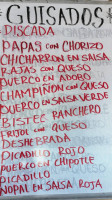 # GUISADOS #
DISCADA
PAPAS CON CHORIZO
CHICHARRON EN SALSA
RAJAS CON QUESO
PUERCO EN ADOBO
CHAMPIÑON CON QUESO
PUERCO EN SALSA VERDE
BISTEC RANCHERO
FRIJOL CON QUESO
DESHEBRADA
PICADILLO ROJO
PUERCO EN CHIPOTLE
PICADILLO
NOPAL EN SALSA ROJA